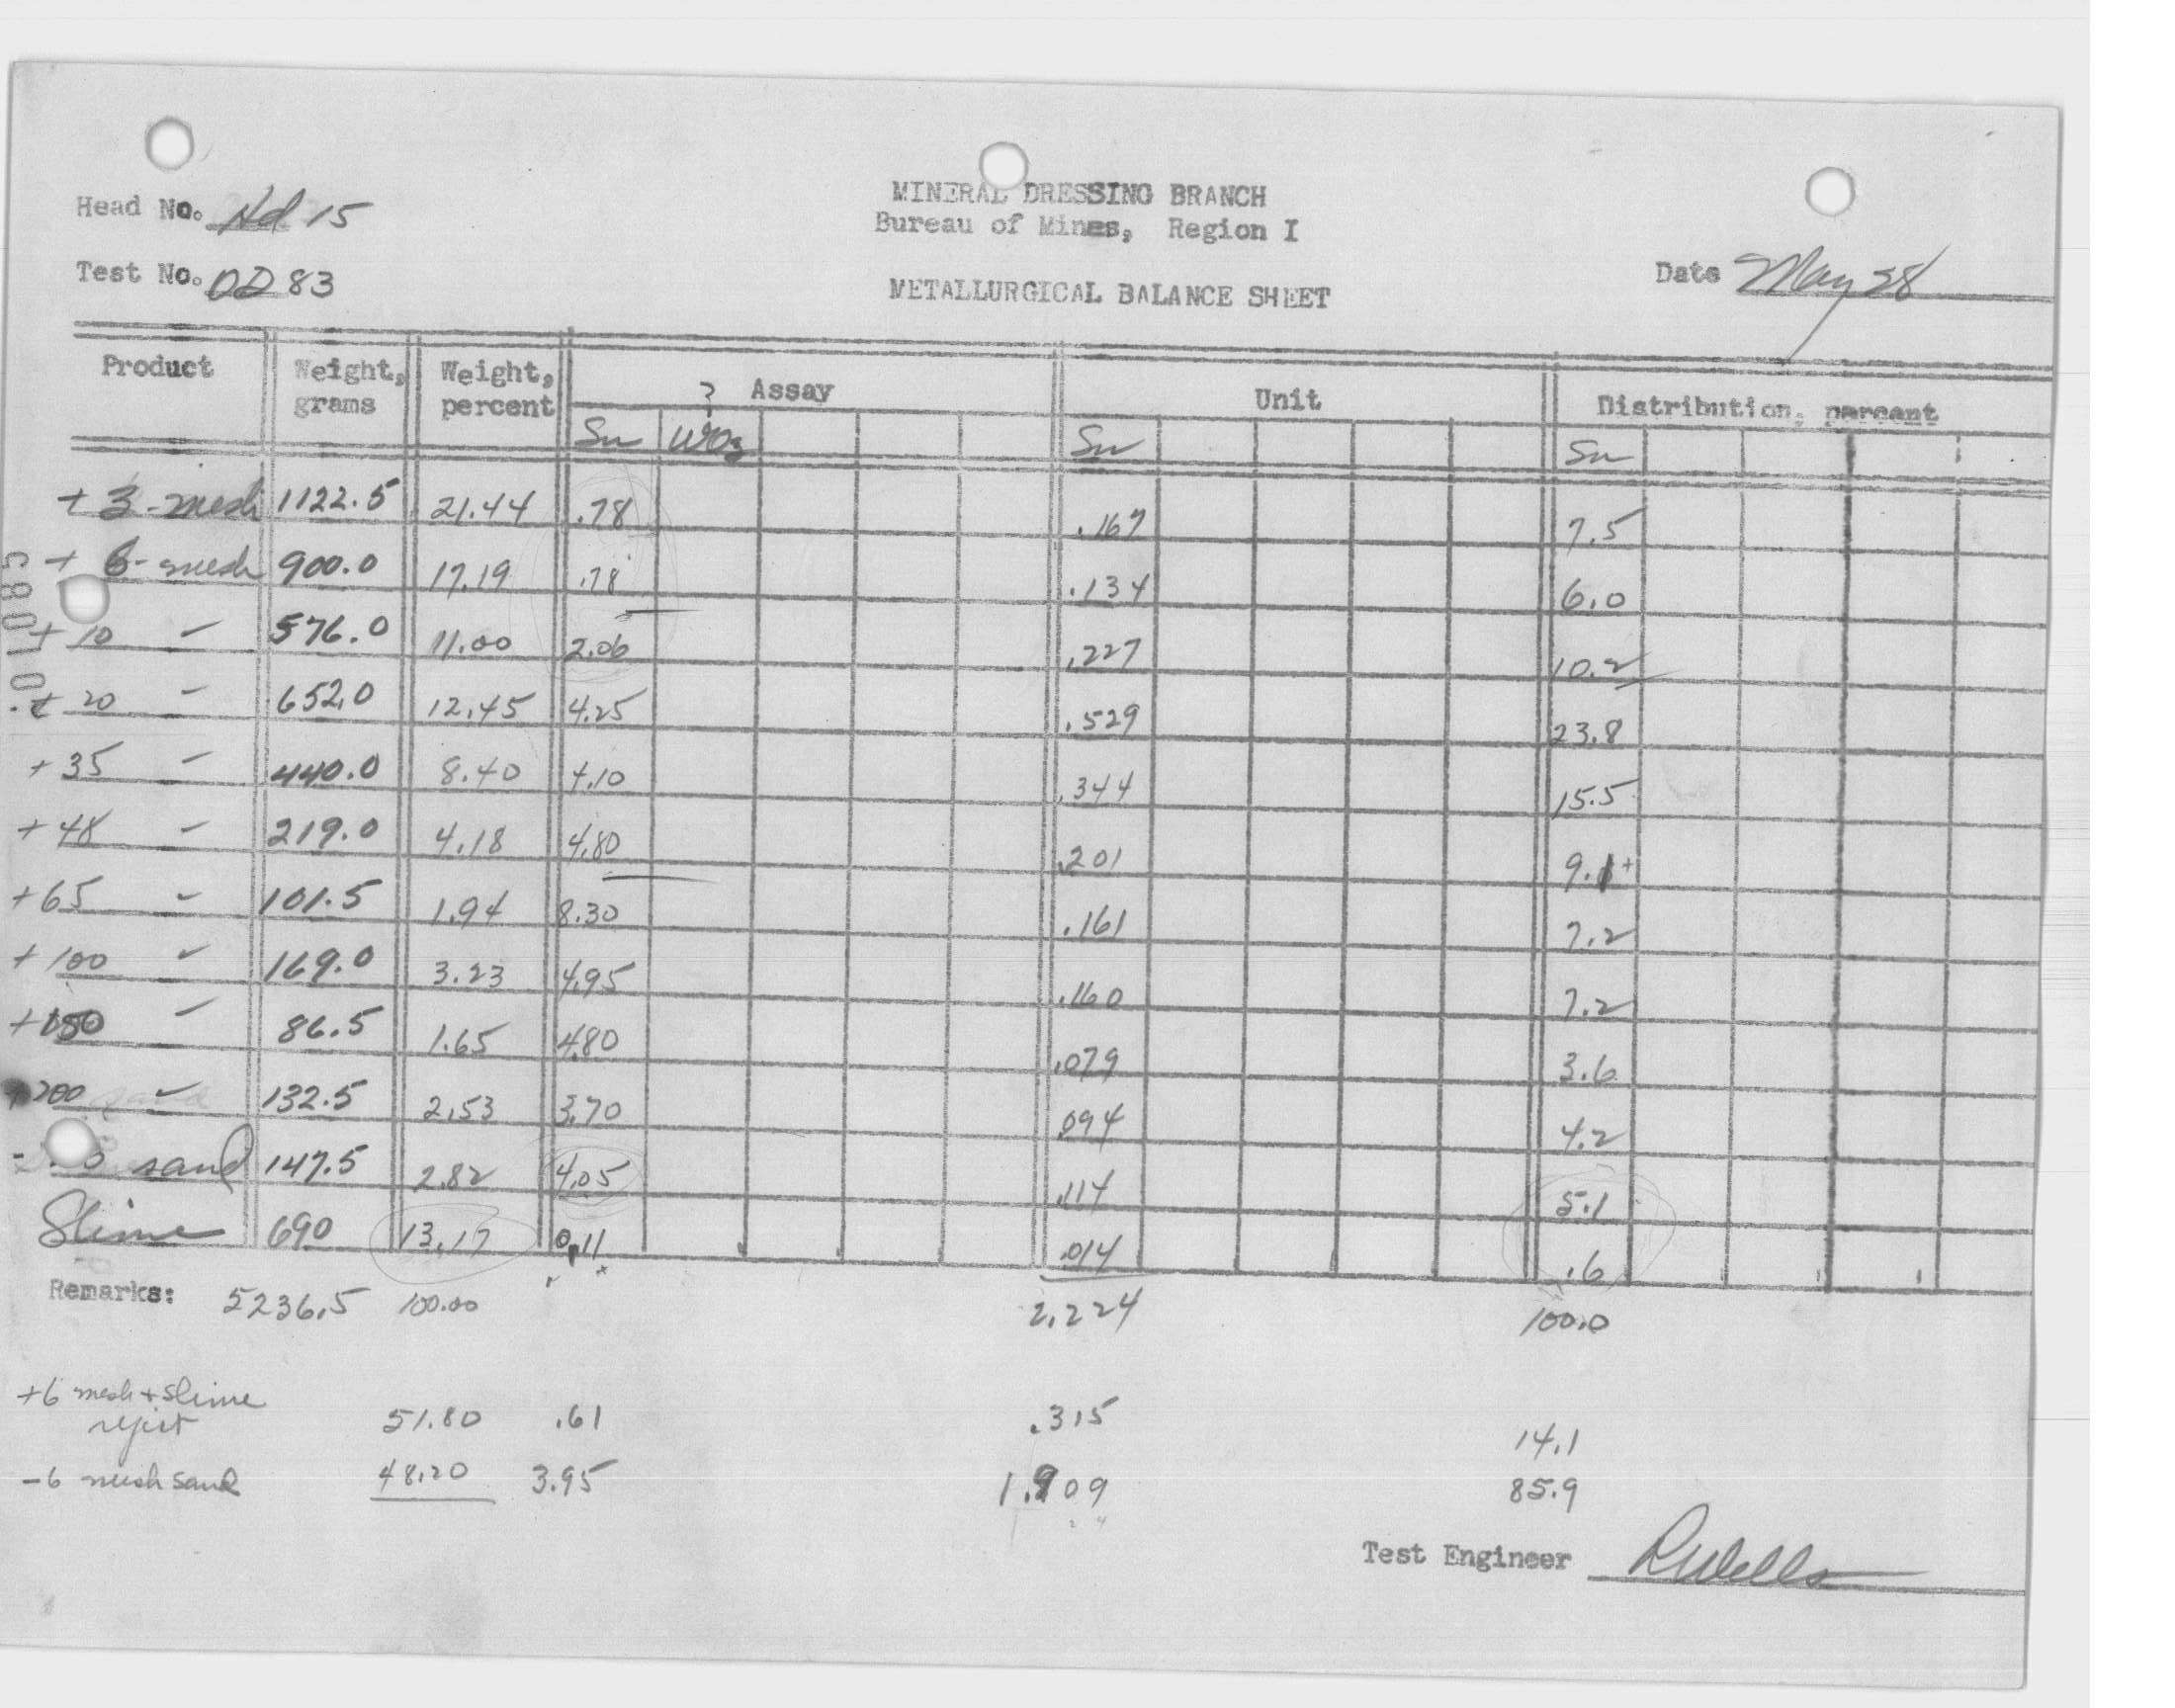 MINERAL DRESSING BRANCH
Head No. Hd 15
Bureau of Mines, Region I
Test No. OD 83
Date May 28
METALLURGICAL BALANCE SHEET
Product Weight, grams Weight, percent ? Assay Unit Distribution, percent
Sn WO3 Sn Sn
+ 3 - mesh 1122.5 21.44 .78 .167 7.5
+ 6 - mesh 900.0 17.19 .78 .134 6.0
+ 10 - 576.0 11.00 2.06 .227 10.2
+ 20 - 652.0 12.45 4.25 .529 23.8
+ 35 - 440.0 8.40 4.10 .344 15.5
+ 48 - 219.0 4.18 4.80 .201 9.1+
+ 65 - 101.5 1.94 8.30 .161 7.2
+ 100 - 169.0 3.23 4.95 .160 7.2
+ 150 - 86.5 1.65 4.80 .079 3.6
+ 200 - 132.5 2.53 3.70 .094 4.2
- sand 147.5 2.82 4.05 .114 5.1
Slime 690 13.17 0.11 .014 .6
Remarks: 5236.5 100.00 2.224 100.0
+6 mesh + slime
reject 51.80 .61 .315 14.1
-6 mesh sand 48.20 3.95 1.909 85.9
Test Engineer RWells